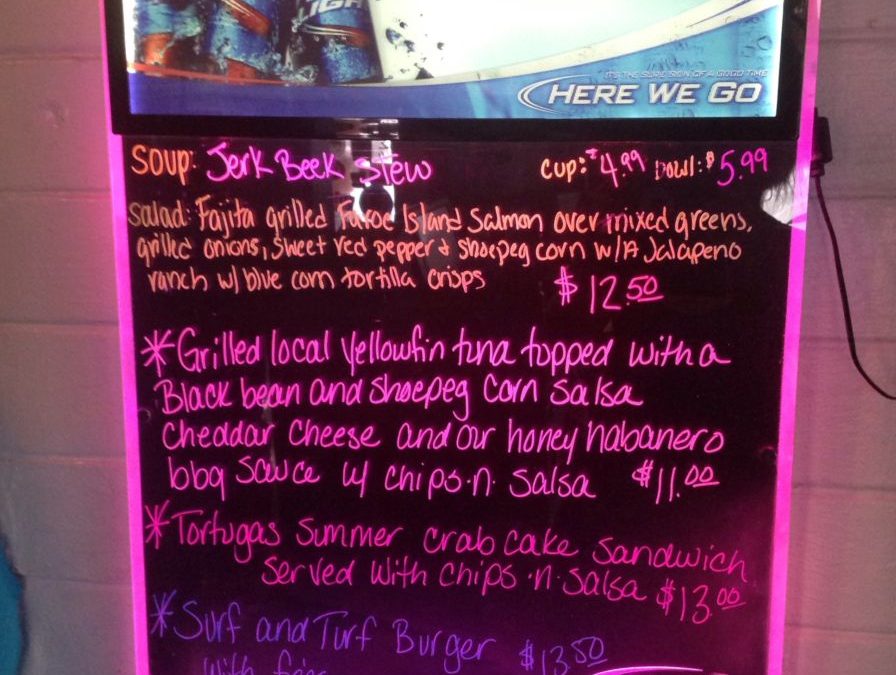 IT'S THE SURE SIGN OF A GOOD TIME
HERE WE GO
Soup: Jerk Beek Stew Cup: $4.99 Bowl: $5.99
Salad: Fajita grilled Faroe Island Salmon over mixed greens,
grilled onions, sweet red pepper & shoepeg corn w/A Jalapeno
ranch w/ blue corn tortilla crisps $12.50
*Grilled local yellowfin tuna topped with a
Black bean and shoepeg corn salsa
cheddar cheese and our honey habanero
bbq sauce w/ chips·n· salsa $11.00
*Tortugas summer crab cake sandwich
served with chips·n·salsa $13.00
*Surf and Turf Burger $13.50
with